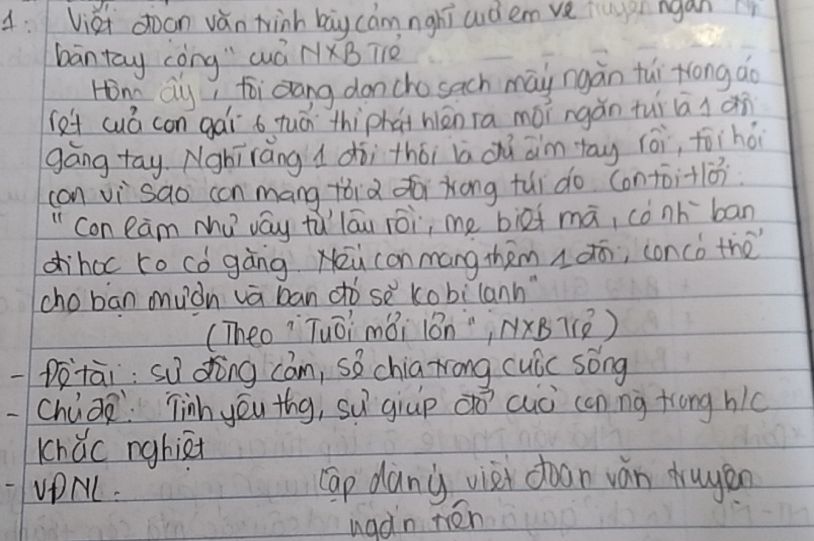 1. Viết đoạn văn trình bày cảm nghĩ của em về truyện ngắn
bàn tay cóng" của NXB Trẻ
Hôm ấy, tôi đang dọn cho sạch mấy ngăn túi trong áo
rét của con gái 6 tuổi thì phát hiện ra mỗi ngăn túi là 1 đôi
găng tay. Nghĩ rằng 1 đôi thôi là đủ ấm tay rồi, tôi hỏi
con vì sao con mang tới 2 đôi trong túi do. Con tôi tlời:
"con làm như vậy từ lâu rồi, mẹ biết mà, có nh` bạn
đi học ko có găng. Nếu con mang thêm 1 đôi, con có thể
cho bạn mượn và bạn đó sẽ ko bị lạnh"
(Theo "Tuổi mới lớn", NXB Trẻ)
- Đề tài: sự đồng cảm, sẻ chia trong cuộc sống
- Chủ đề: Tình yêu thg, sự giúp đỡ của con ng trong h/c
khắc nghiệt
- VĐNL: Lập dàn ý viết đoạn văn truyện
ngắn trên